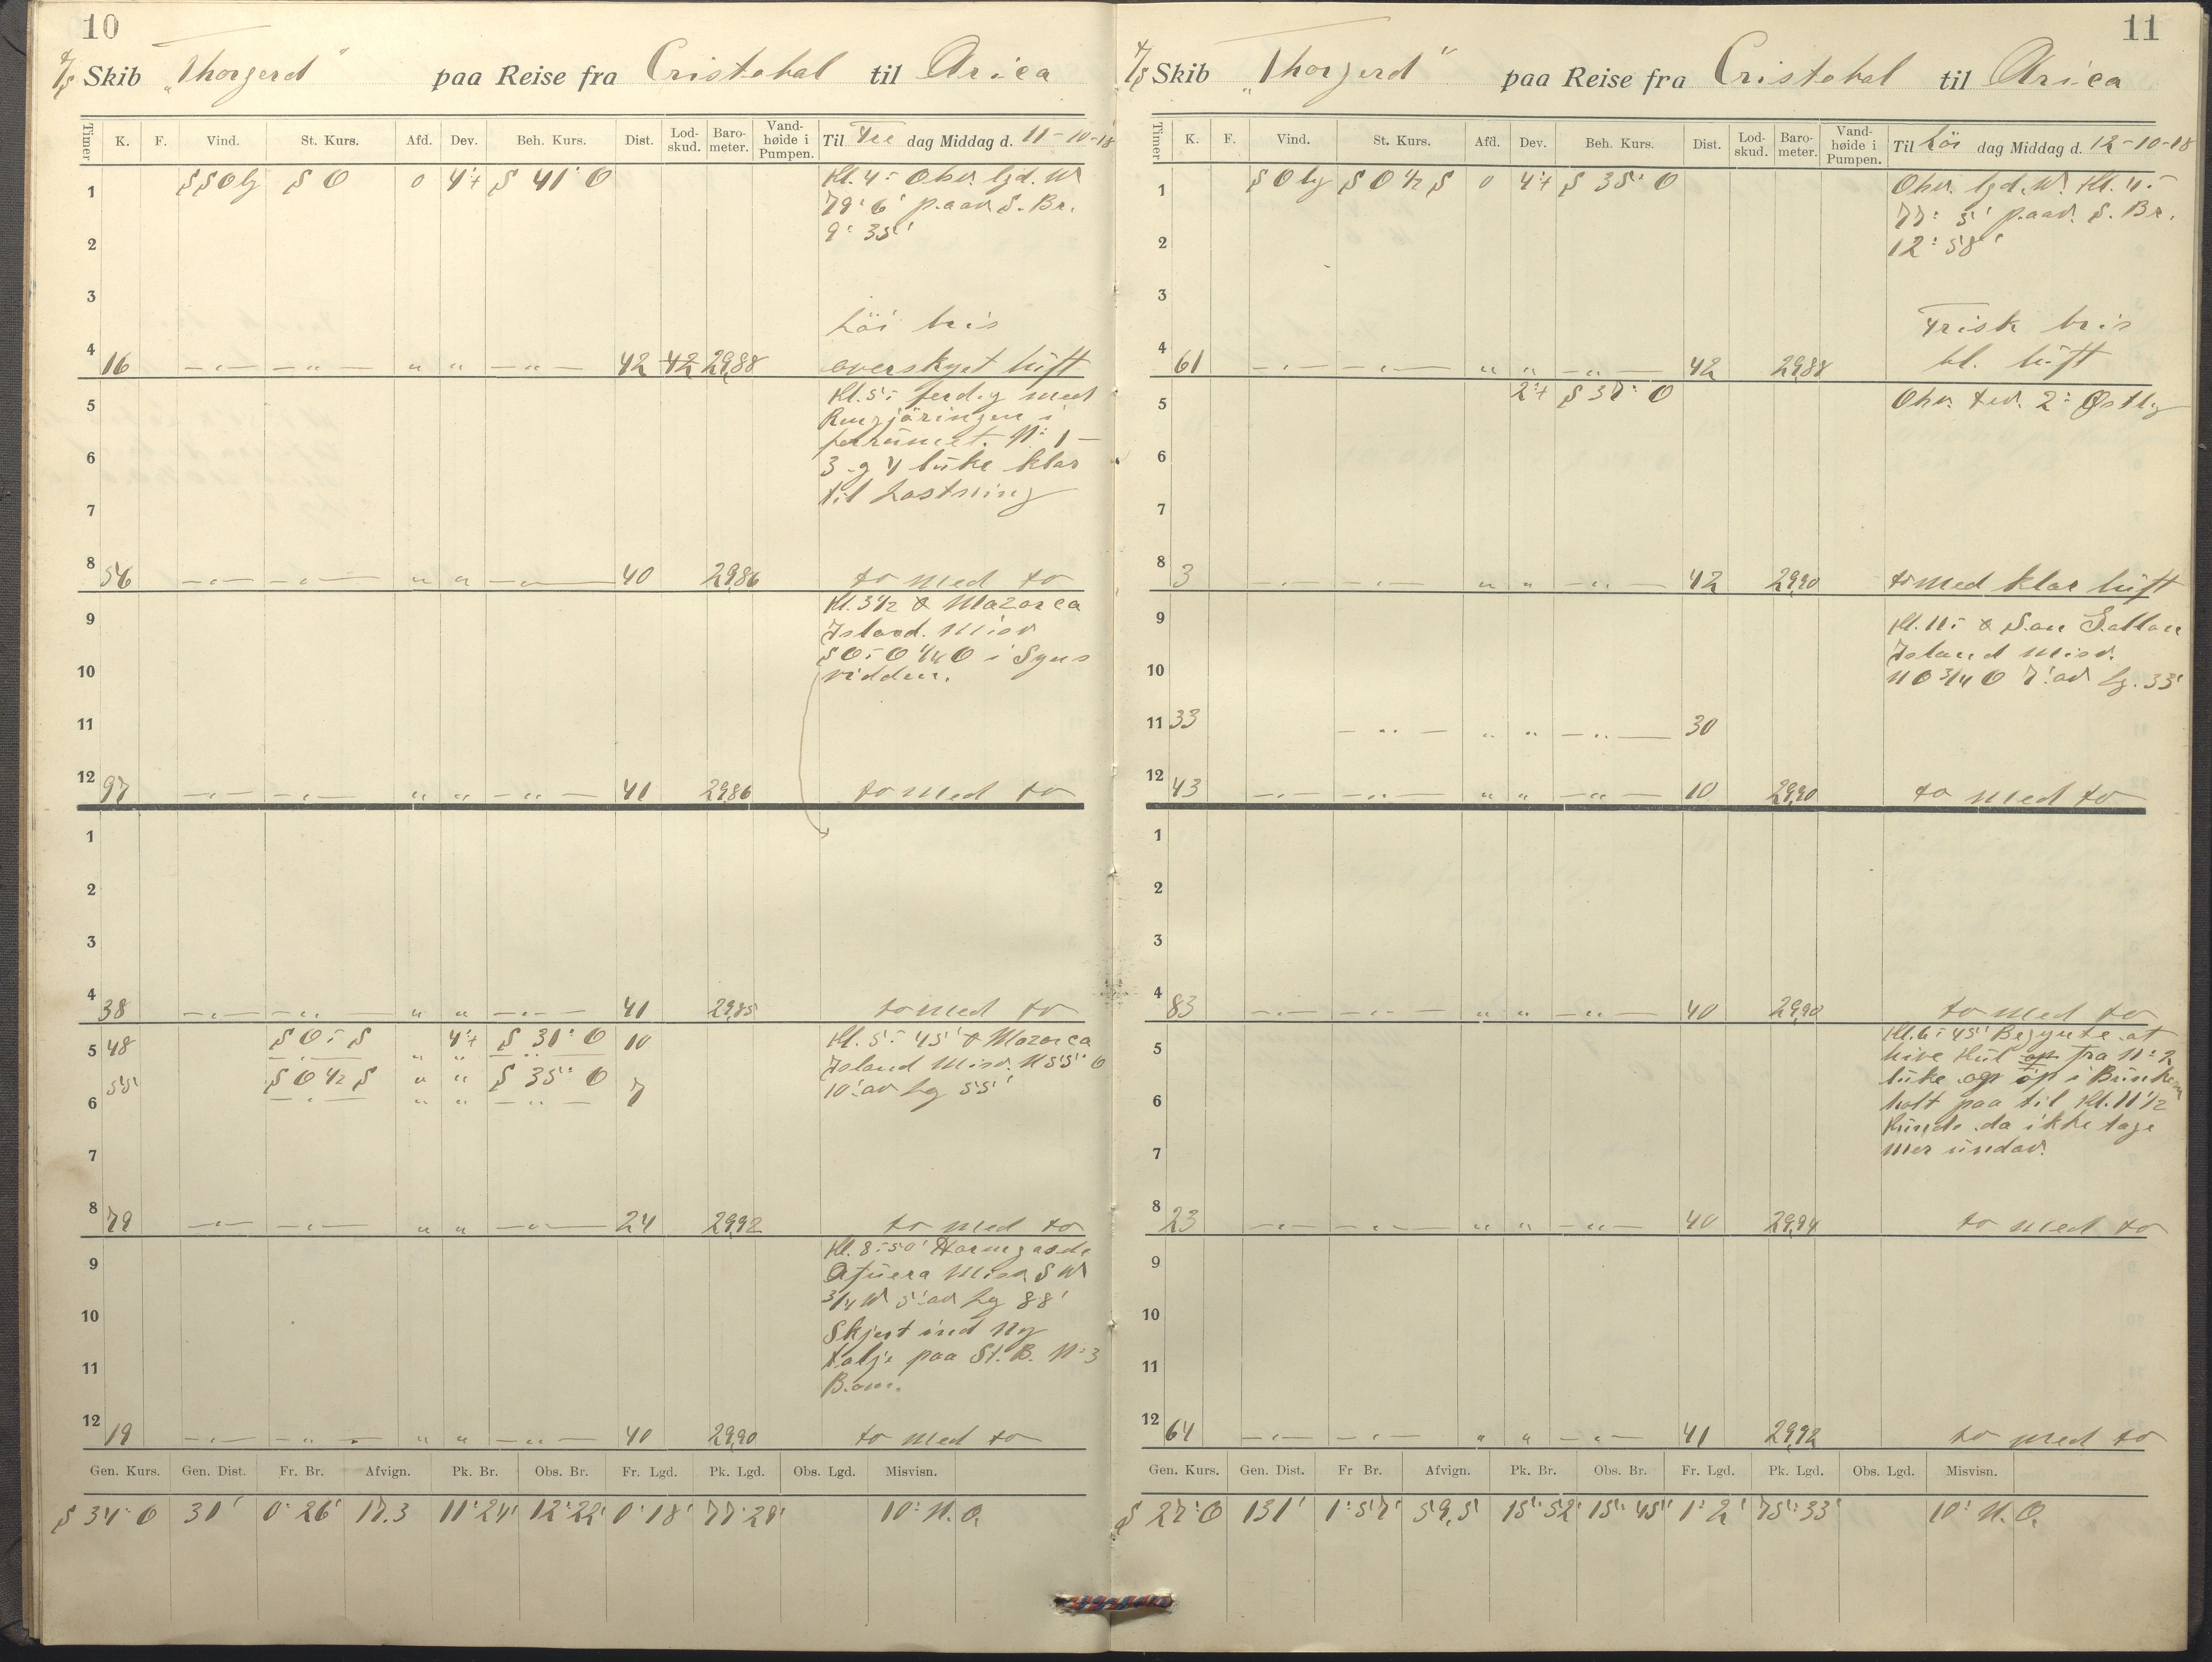 10
S/S Skib "Thorgerd" paa Reise fra Cristobal til Arica
Timer K. F. Vind. St. Kurs. Afd. Dev. Beh. Kurs. Dist. Lod-skud. Baro-meter. Vand-høide i Pumpen. Til Fre dag Middag d. 11-10-18
1 SSOlg SO 0 4°+ S 41° O Kl. 4- Obv. lgd. W
79° 6' paav. S. Br.
2 9° 35'
3
Löi bris
4 16 42 42 29,88 overskyet luft
Kl. 5- ferdig med
5 Rengjöringen i
forrumet. N: 1 -
6 3 og 4 luke klar
7 til Lastning
8 56 40 29,86 to med to
Kl. 3 1/2 Mazorca
9 Island. Misv
SO-O 1/4 O i Syns
10 vidden.
11
12 97 41 29,86 to med to
1
2
3
4 38 41 29,85 to med to
5 48 SO-S 4°+ S 31° O 10 Kl. 5- 45' Mazorca
55 SO 1/2 S S 35° O 7 Island Misv. N 55° O
6 10' av Lg 55'
7
8 79 24 29,92 to med to
Kl. 8-50' Hormgasde
9 Afuera Misv. SW
3/4 W 5' av Lg 88'
10 Skjert ind ny
11 talje paa St. B. N: 3
Bom.
12 19 40 29,90 to med to
Gen. Kurs. Gen. Dist. Fr. Br. Afvign. Pk. Br. Obs. Br. Fr. Lgd. Pk. Lgd. Obs. Lgd. Misvisn.
S 34° O 31' 0° 26' 17.3 11° 24' 12° 22' 0° 18' 77° 28' 10° N. O.
11
S/S Skib "Thorgerd" paa Reise fra Cristobal til Arica
Timer K. F. Vind. St. Kurs. Afd. Dev. Beh. Kurs. Dist. Lod-skud. Baro-meter. Vand-høide i Pumpen. Til Löi dag Middag d. 12-10-18
1 SOlg SO 1/2 S 0 4°+ S 35° O Obv. lgd. W. Kl. 4-
77° 5' paav. S. Br.
2 12° 58'
3
Frisk bris
4 61 42 29,88 bl. luft
5 2°+ S 37° O Obv. dev. 2° Østlig
6
7
8 3 42 29,90 to med klar luft
9 Kl. 11- San Gallan
Island Misv.
10 NO 3/4 O 7' av lg. 33'
11 33 30
12 43 10 29,90 to med to
1
2
3
4 83 40 29,90 to med to
Kl. 6- 45' Begynte at
5 hive Kul op fra N: 2
luke op i Bunkern
6 holt paa til Kl. 11 1/2
Kunde da ikke tage
7 mer undav.
8 23 40 29,94 to med to
9
10
11
12 64 41 29,92 to med to
Gen. Kurs. Gen. Dist. Fr Br. Afvign. Pk. Br. Obs. Br. Fr. Lgd. Pk. Lgd. Obs. Lgd. Misvisn.
S 27° O 131' 1° 57' 59,5 15° 52' 15° 45' 1° 2' 75° 33' 10° N. O.